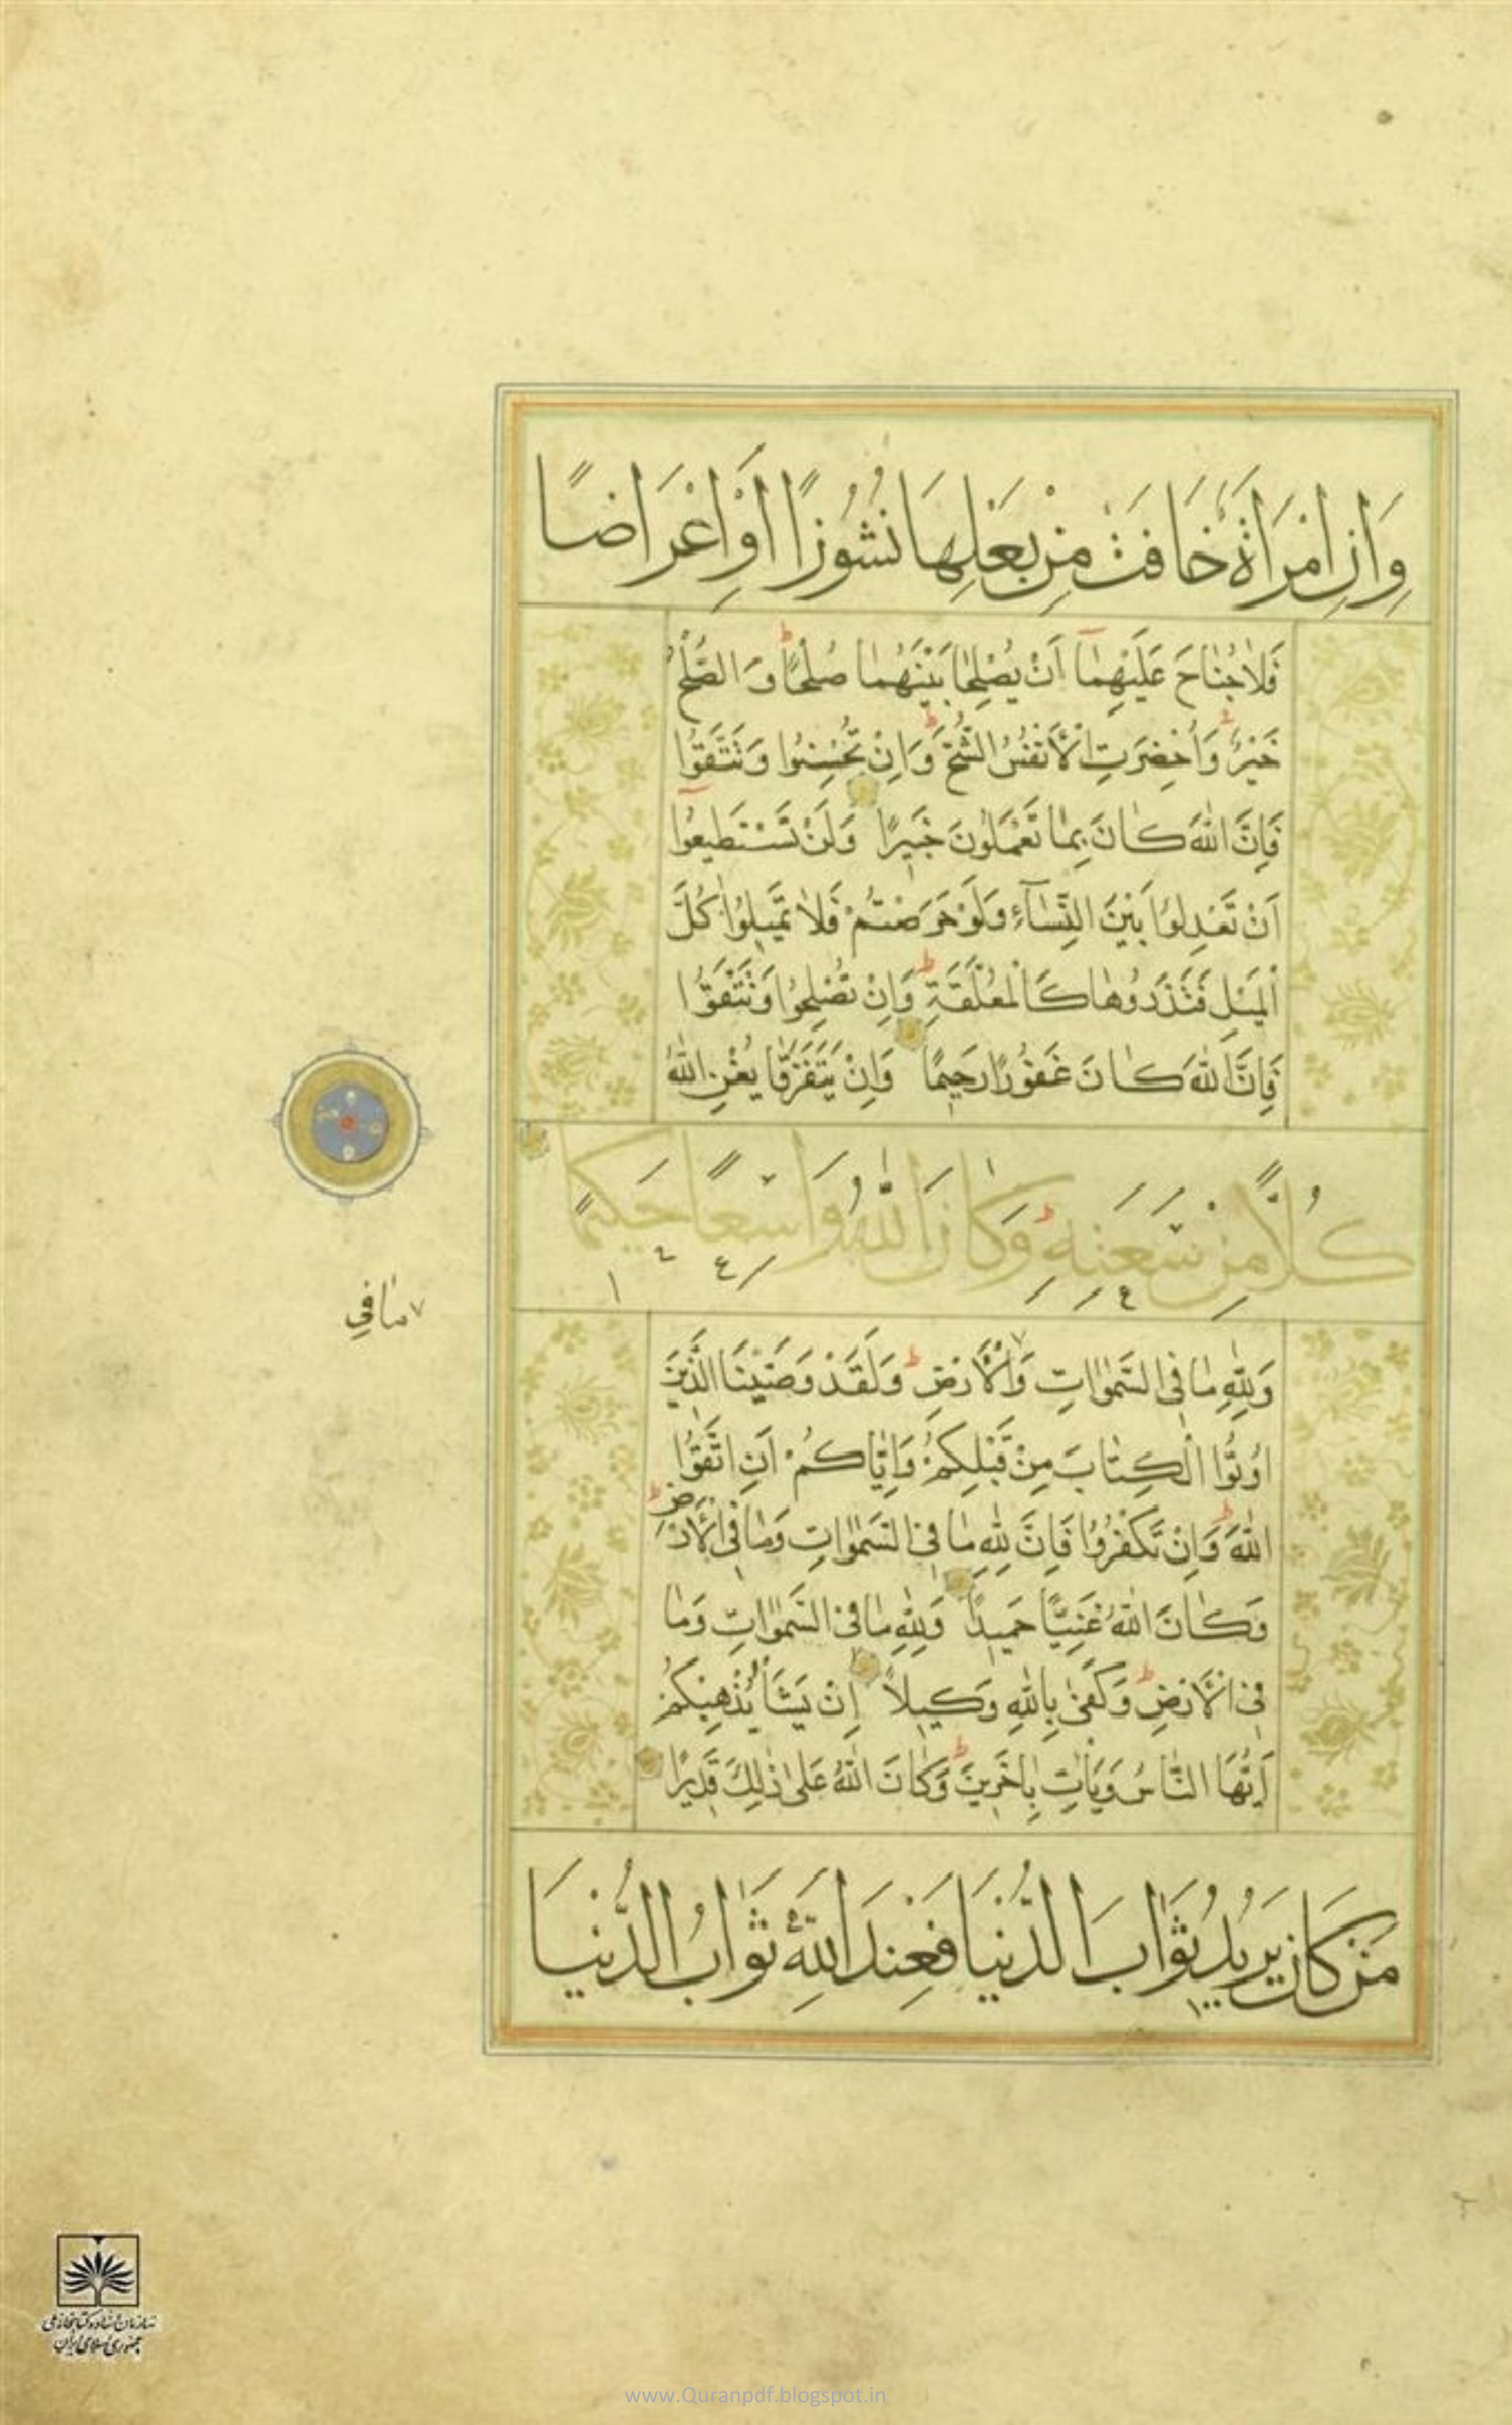 وَاِنِ امْرَاَةٌ خَافَتْ مِنْ بَعْلِهَا نُشُوزًا اَوْ اِعْرَاضًا
فَلَا جُنَاحَ عَلَيْهِمَآ اَنْ يُصْلِحَا بَيْنَهُمَا صُلْحًا ط وَالصُّلْحُ
خَيْرٌ ط وَاُحْضِرَتِ الْاَنْفُسُ الشُّحَّ ط وَاِنْ تُحْسِنُوا وَتَتَّقُوا
فَاِنَّ اللهَ كَانَ بِمَا تَعْمَلُونَ خَبِيرًا وَلَنْ تَسْتَطِيعُوآ
اَنْ تَعْدِلُوا بَيْنَ النِّسَآءِ وَلَوْ حَرَصْتُمْ فَلَا تَمِيلُوا كُلَّ
الْمَيْلِ فَتَذَرُوهَا كَالْمُعَلَّقَةِ ط وَاِنْ تُصْلِحُوا وَتَتَّقُوا
فَاِنَّ اللهَ كَانَ غَفُورًا رَحِيمًا وَاِنْ يَتَفَرَّقَا يُغْنِ اللهُ
كُلًّا مِنْ سَعَتِهِ ط وَكَانَ اللهُ وَاسِعًا حَكِيمًا
مَا فِي
وَلِلّٰهِ مَا فِي السَّمٰوَاتِ وَالْاَرْضِ ط وَلَقَدْ وَصَّيْنَا الَّذِينَ
اُوتُوا الْكِتَابَ مِنْ قَبْلِكُمْ وَاِيَّاكُمْ اَنِ اتَّقُوا
اللهَ ط وَاِنْ تَكْفُرُوا فَاِنَّ لِلّٰهِ مَا فِي السَّمٰوَاتِ وَمَا فِي الْاَرْضِ ط
وَكَانَ اللهُ غَنِيًّا حَمِيدًا وَلِلّٰهِ مَا فِي السَّمٰوَاتِ وَمَا
فِي الْاَرْضِ ط وَكَفٰى بِاللهِ وَكِيلًا اِنْ يَشَاْ يُذْهِبْكُمْ
اَيُّهَا النَّاسُ وَيَاْتِ بِاٰخَرِينَ ط وَكَانَ اللهُ عَلٰى ذٰلِكَ قَدِيرًا
مَنْ كَانَ يُرِيدُ ثَوَابَ الدُّنْيَا فَعِنْدَ اللهِ ثَوَابُ الدُّنْيَا
سازمان اسناد و کتابخانه ملی
جمهوری اسلامی ایران
www.Quranpdf.blogspot.in